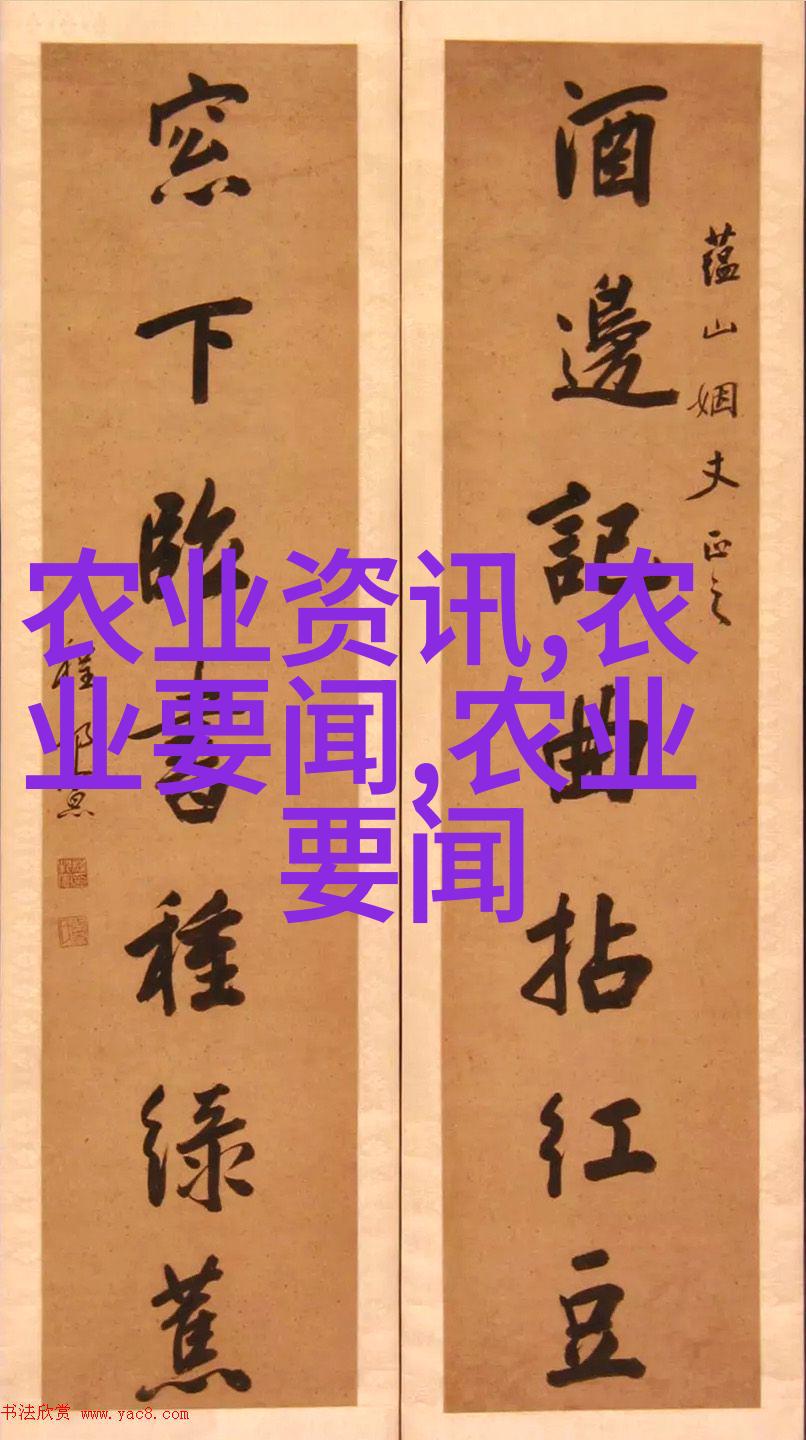 蘊山姻丈正之
酒邊記曲拈紅豆
窓下臨書種綠蕉
程
农业资讯,农
业要闻,农业
要闻
书法欣赏 www.yac8.com